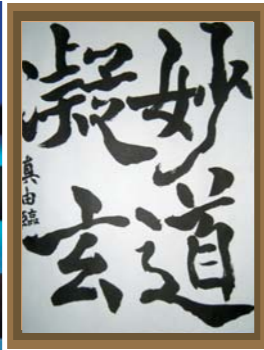 妙道
凝玄
真由臨